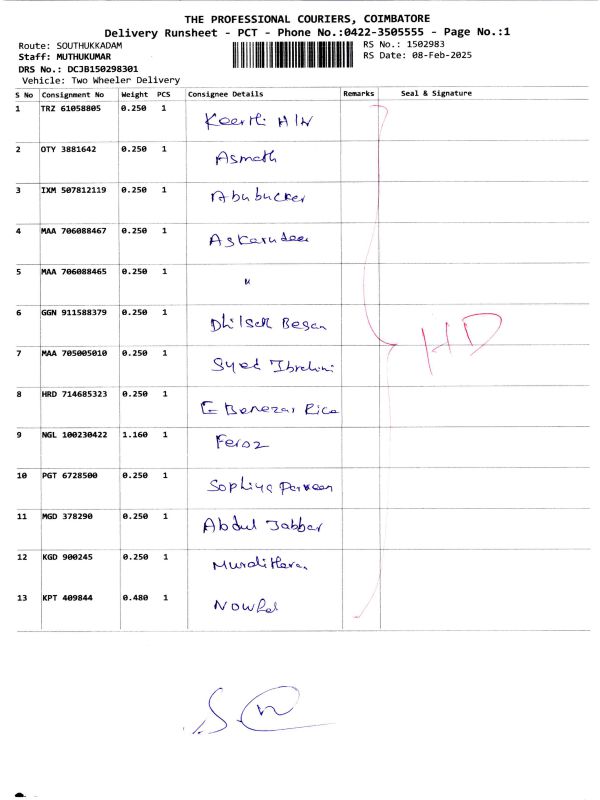 THE PROFESSIONAL COURIERS, COIMBATORE
Delivery Runsheet - PCT - Phone No.:0422-3505555 - Page No.:1
Route: SOUTHUKKADAM RS No.: 1502983
Staff: MUTHUKUMAR RS Date: 08-Feb-2025
DRS No.: DCJB150298301
Vehicle: Two Wheeler Delivery
S No Consignment No Weight PCS Consignee Details Remarks Seal & Signature
1 TRZ 61058805 0.250 1 Keerthi H/W
2 OTY 3881642 0.250 1 Asmath
3 IXM 507812119 0.250 1 Abubucker
4 MAA 706088467 0.250 1 Askarudeen
5 MAA 706088465 0.250 1 "
6 GGN 911588379 0.250 1 Dhilsath Began
HD
7 MAA 705005010 0.250 1 Syed Ibrahim
8 HRD 714685323 0.250 1 Ebenezar Rica
9 NGL 100230422 1.160 1 Feroz
10 PGT 6728500 0.250 1 Sophiya Parveen
11 MGD 378290 0.250 1 Abdul Jabbar
12 KGD 900245 0.250 1 Muralitharan
13 KPT 409844 0.480 1 Nowfal